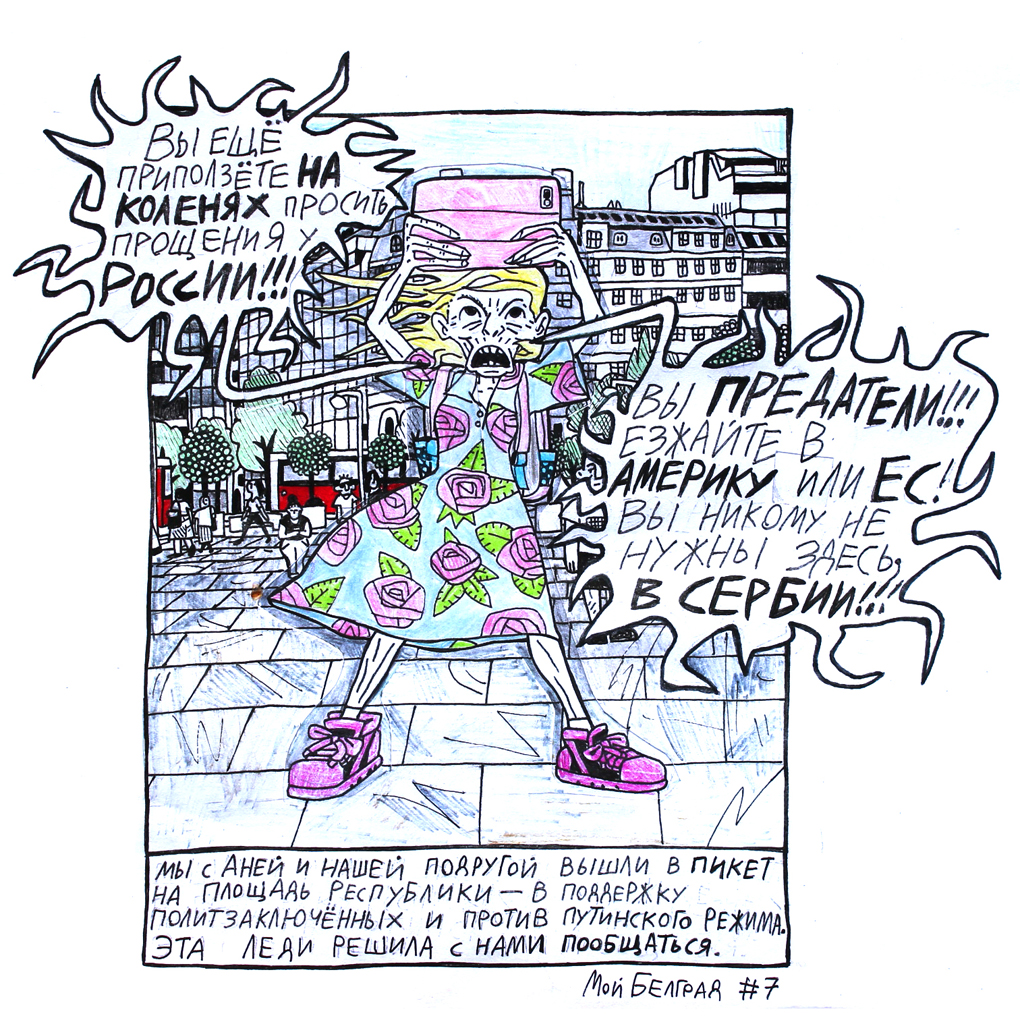 ВЫ ЕЩЁ
ПРИПОЛЗЁТЕ НА
КОЛЕНЯХ ПРОСИТЬ
ПРОЩЕНИЯ У
РОССИИ!!!
ВЫ ПРЕДАТЕЛИ!!!
ЕЗЖАЙТЕ В
АМЕРИКУ ИЛИ ЕС!
ВЫ НИКОМУ НЕ
НУЖНЫ ЗДЕСЬ,
В СЕРБИИ!!!
МЫ С АНЕЙ И НАШЕЙ ПОДРУГОЙ ВЫШЛИ В ПИКЕТ
НА ПЛОЩАДЬ РЕСПУБЛИКИ — В ПОДДЕРЖКУ
ПОЛИТЗАКЛЮЧЁННЫХ И ПРОТИВ ПУТИНСКОГО РЕЖИМА.
ЭТА ЛЕДИ РЕШИЛА С НАМИ ПООБЩАТЬСЯ.
МОЙ БЕЛГРАД #7